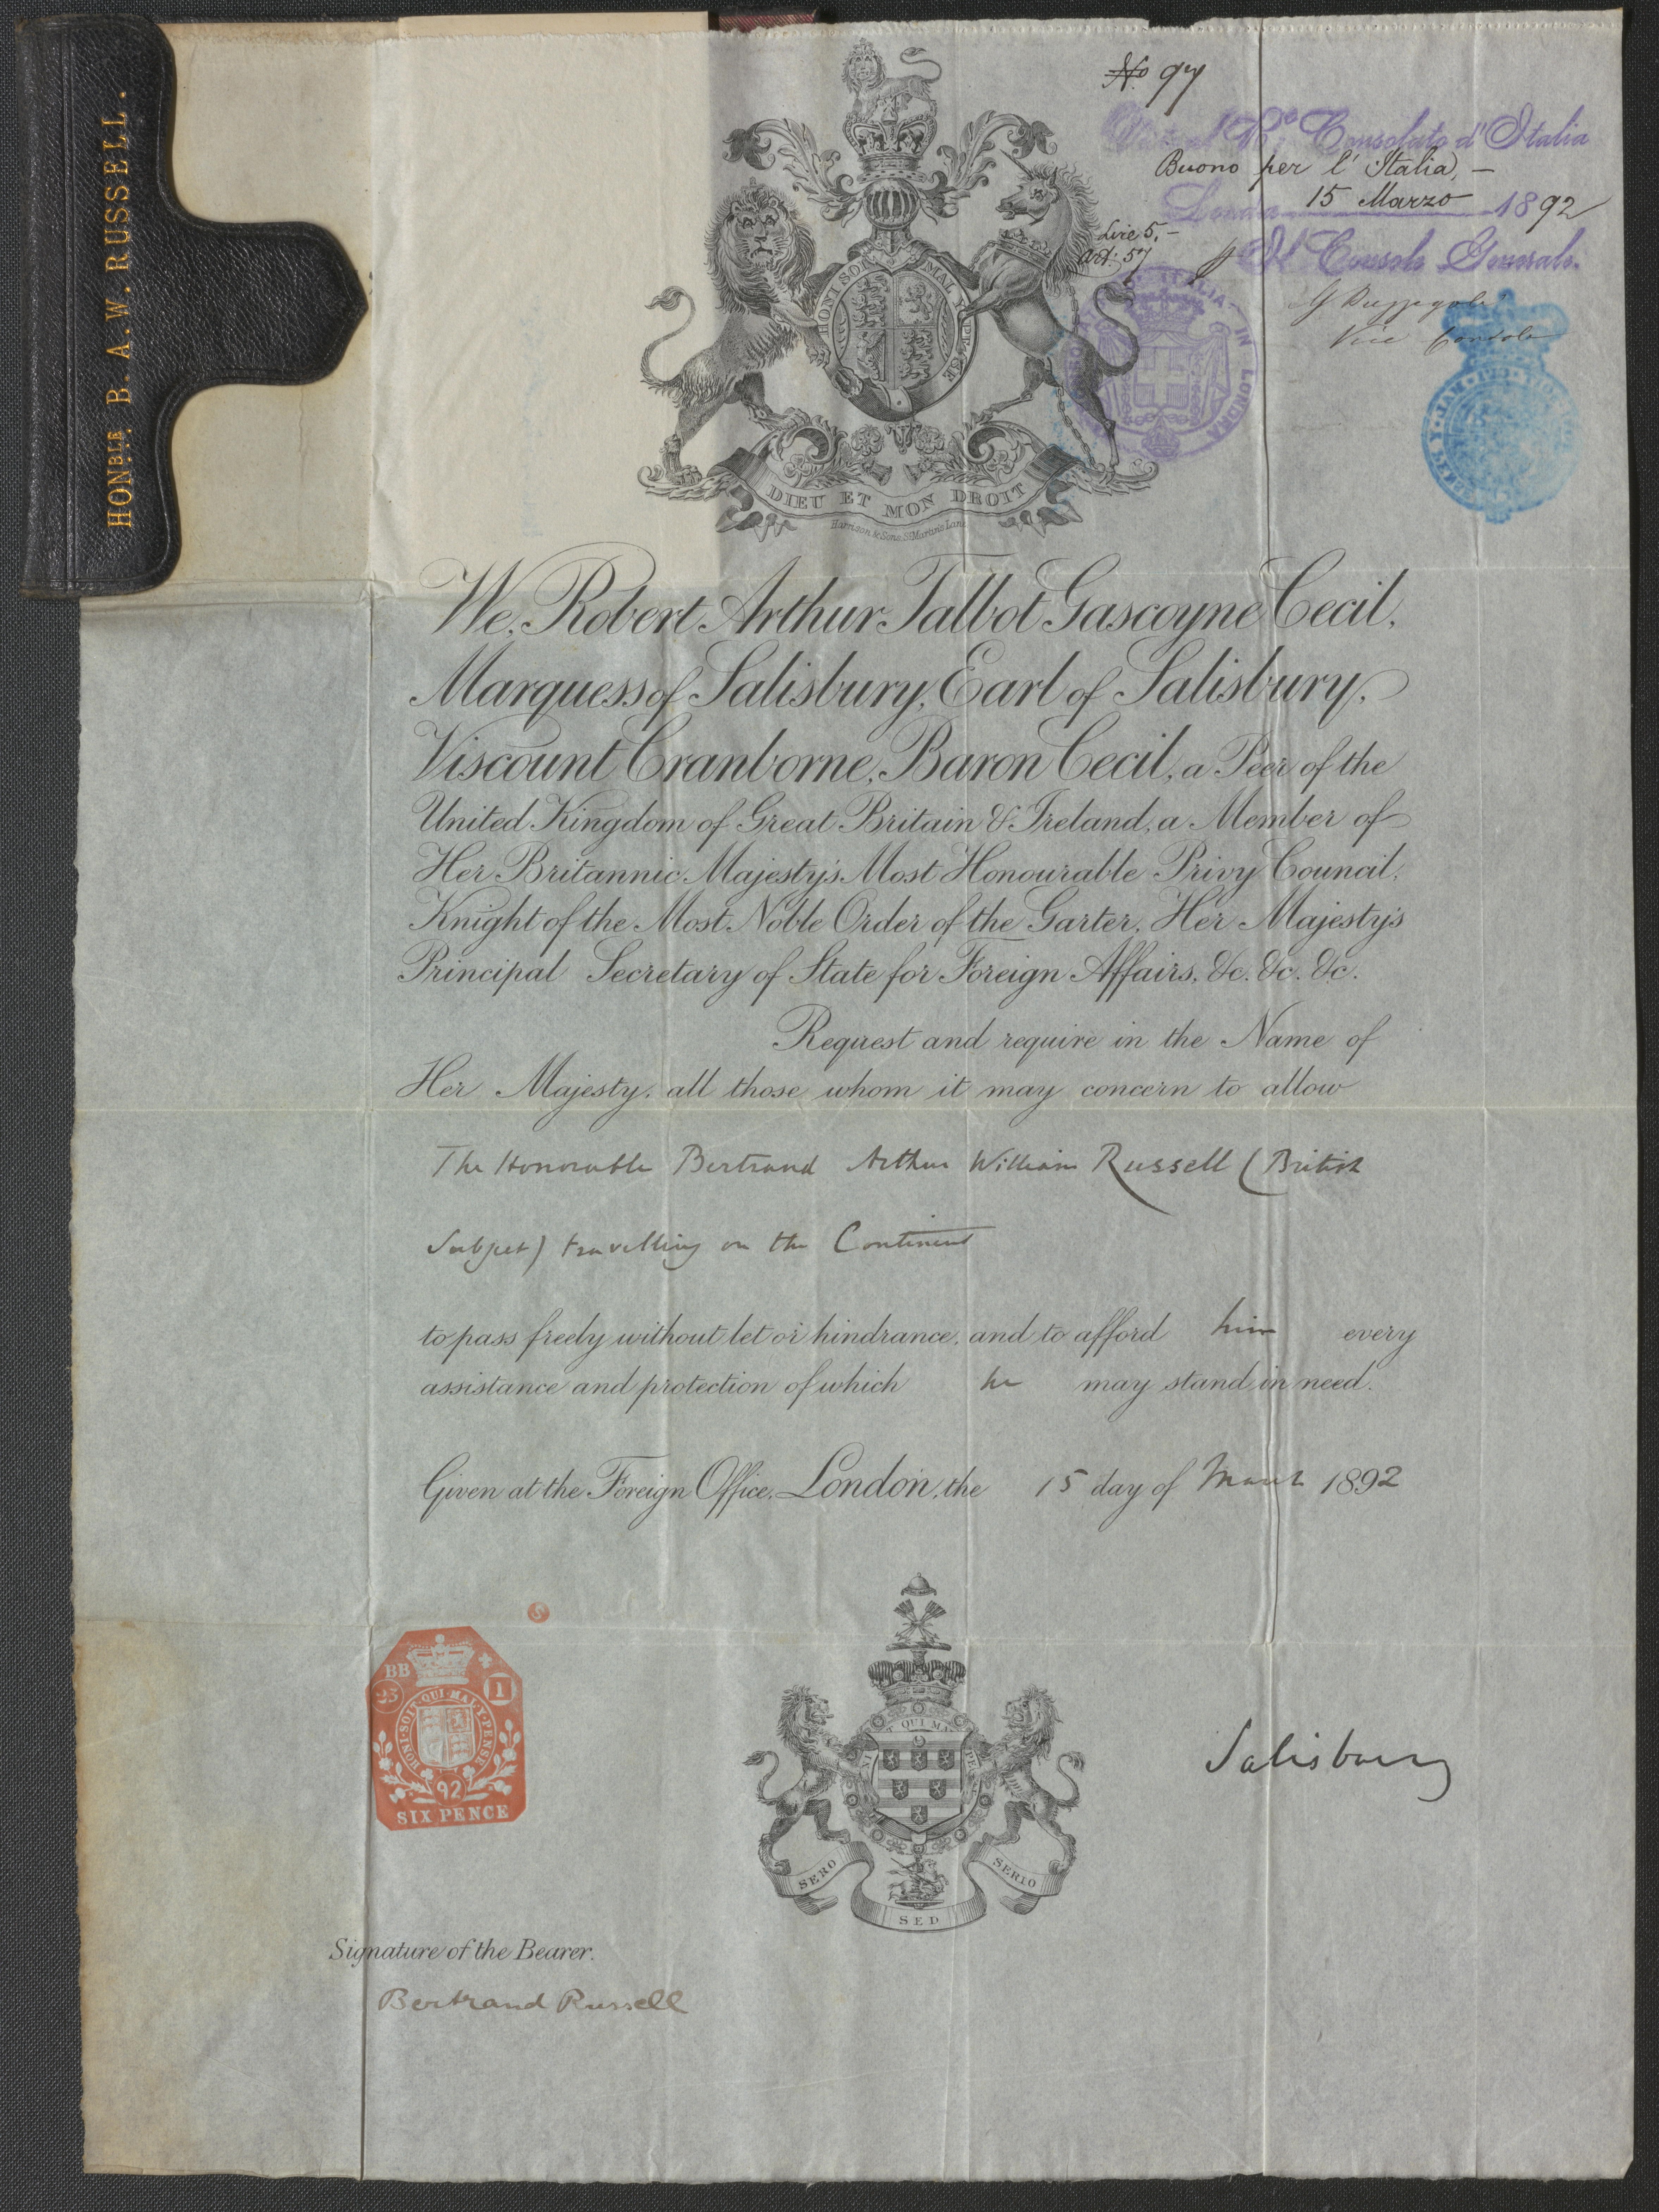 HONBLE. B. A. W. RUSSELL.
No 97
Consolato d'Italia
Buono per l' Italia, —
Londra 15 Marzo 1892
Lire 5. —
Art. 57
p Il Console Generale.
Vice Console
ITALIA IN LONDRA
HONI SOI MAL Y PENSE
DIEU ET MON DROIT
Harrison & Sons, St Martin's Lane
We, Robert Arthur Talbot Gascoyne Cecil,
Marquess of Salisbury, Earl of Salisbury,
Viscount Cranborne, Baron Cecil, a Peer of the
United Kingdom of Great Britain & Ireland, a Member of
Her Britannic Majesty's Most Honourable Privy Council,
Knight of the Most Noble Order of the Garter, Her Majesty's
Principal Secretary of State for Foreign Affairs, &c. &c. &c.
Request and require in the Name of
Her Majesty, all those whom it may concern to allow
The Honorable Bertrand Arthur William Russell (British
Subject) travelling on the Continent
to pass freely without let or hindrance, and to afford him every
assistance and protection of which he may stand in need.
Given at the Foreign Office, London, the 15 day of March 1892
S
BB
25 1
HONI·SOIT·QUI·MAL·Y·PENSE
92
SIX PENCE
QUI MA
SERO SED SERIO
Salisbury
Signature of the Bearer.
Bertrand Russell